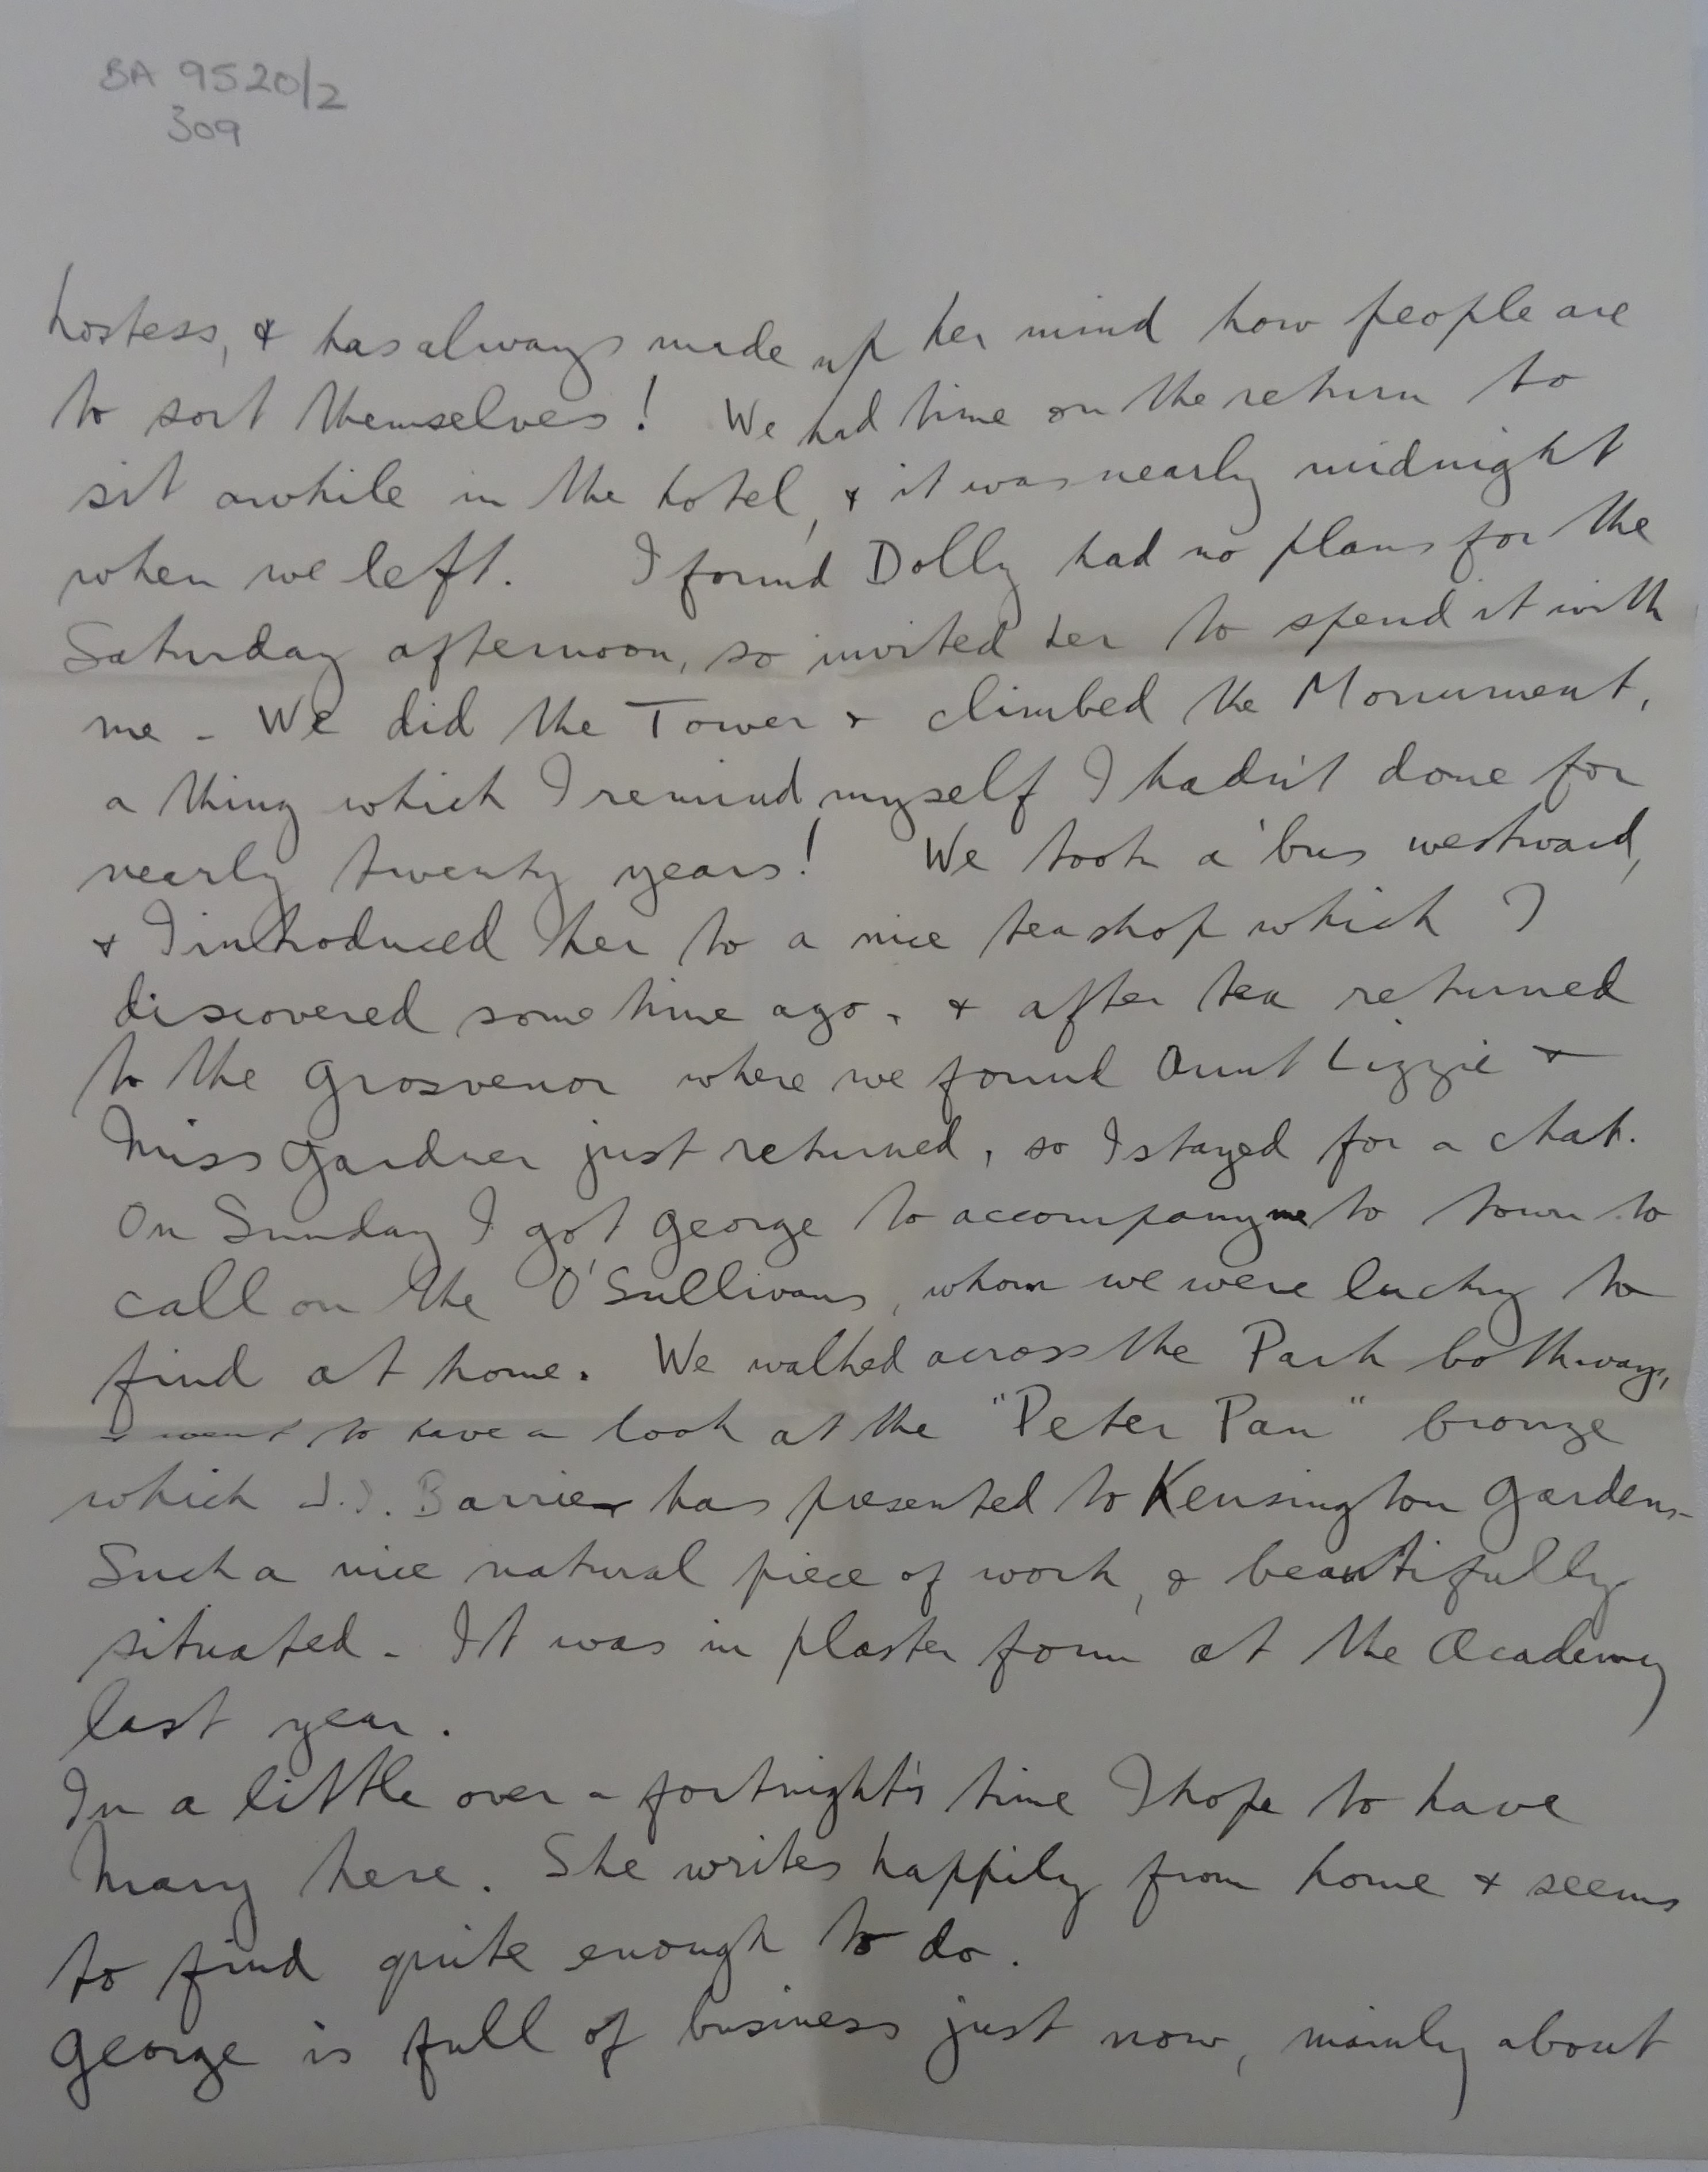 BA 9520/2
309
hostess, & has always made up her mind how people are
to sort themselves! We had time on the return to
sit awhile in the hotel, & it was nearly midnight
when we left. I found Dolly had no plans for the
Saturday afternoon, so invited her to spend it with
me - We did the Tower & climbed the Monument,
a thing which I remind myself I hadn't done for
nearly twenty years! We took a 'bus westward,
& I introduced her to a nice teashop which I
discovered some time ago, & after tea returned
to the Grosvenor where we found Aunt Lizzie &
Miss Gardner just returned, so I stayed for a chat.
On Sunday I got George to accompany me to town to
call on the O'Sullivans, whom we were lucky to
find at home. We walked across the Park both ways,
& went to have a look at the "Peter Pan" bronze
which J.J. Barrie has presented to Kensington Gardens -
Such a nice natural piece of work, & beautifully
situated - It was in plaster form at the Academy
last year.
In a little over a fortnight's time I hope to have
Mary here. She writes happily from home & seems
to find quite enough to do.
George is full of business just now, mainly about